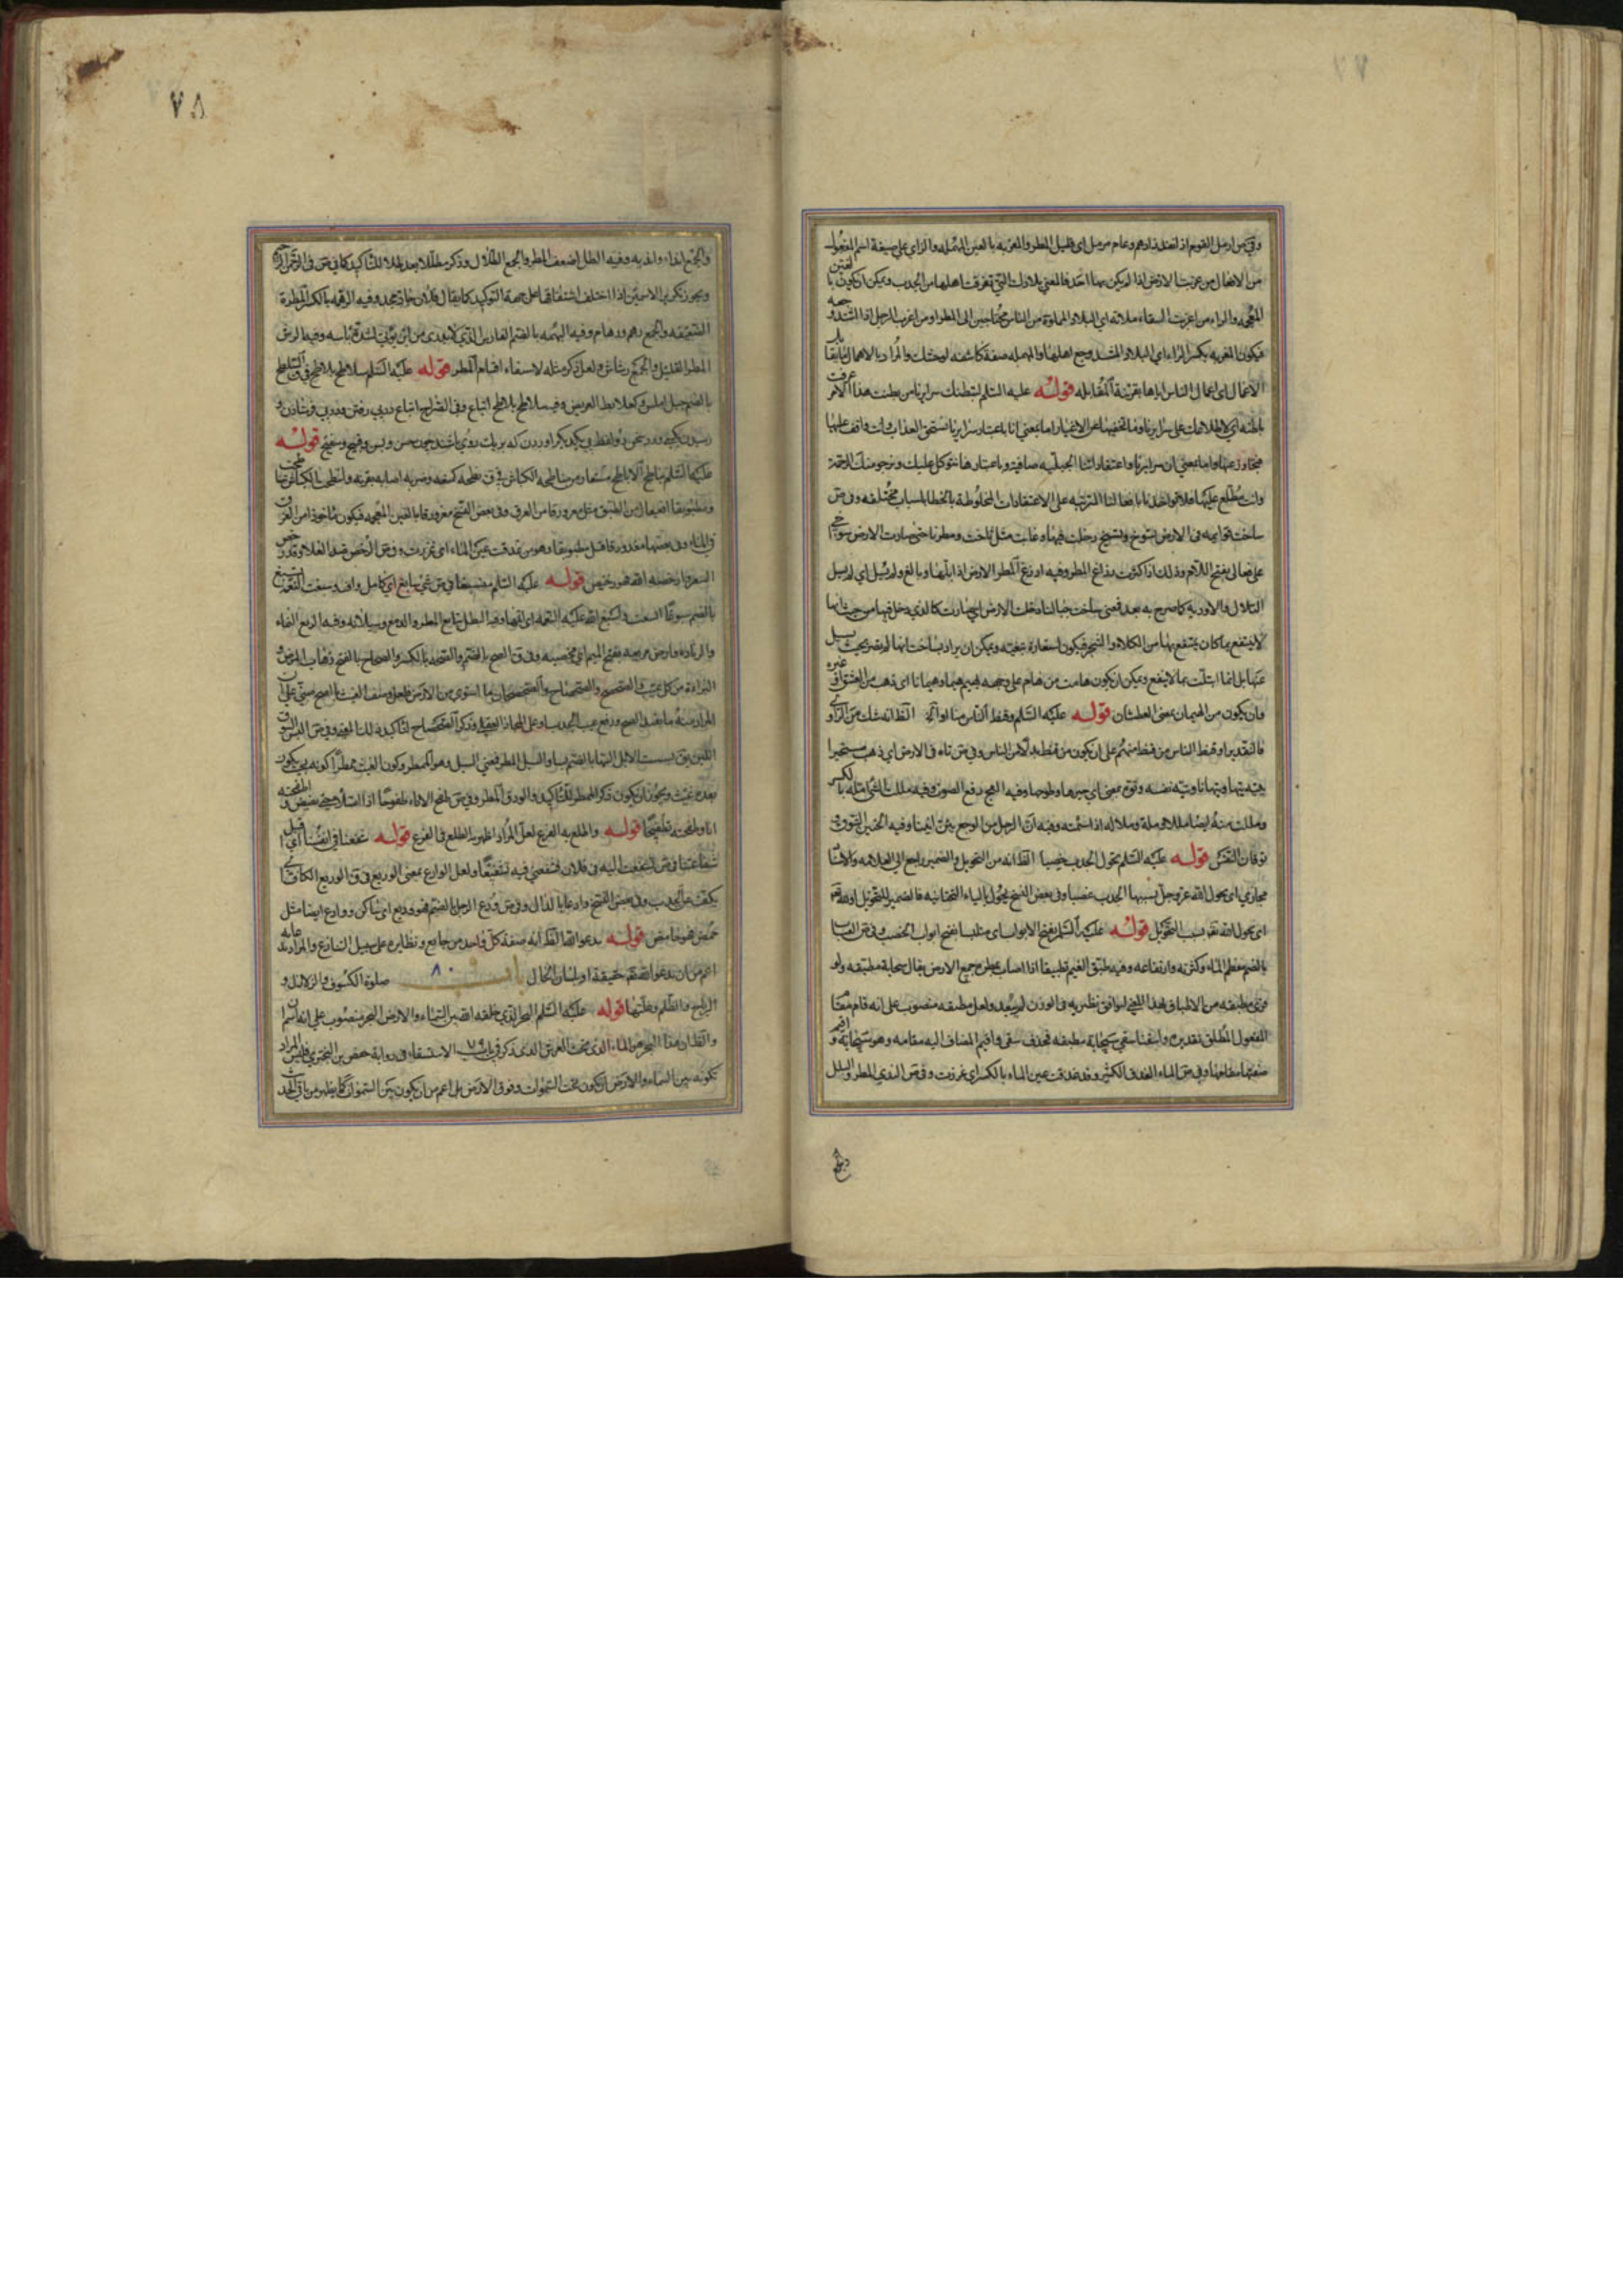 ٧٧
وفي ص ارمل القوم اذا نفد زادهم وعام مرمل اى قليل المطر والمعزبه بالعين المهمله والزاي على صيغة اسم المفعول
من الافعال من عزبت الارض اذا لم يكن بها احد فالمعنى بلادك التى تفرقت اهلها من الجدب ويمكن ان يكون بالغين
المعجمه والراء من اغربت السقاء ملاته اى البلاد المملوة من الناس محتاجين الى المطر او من اغرب الرجل اذا اشتد وجعه
فيكون المغربه بكسر الراء اى البلاد المشتد وجع اهلها والمهمله صفة كاشفه لوحشك والمراد بالاهمال
الاعمال اى اعمال الناس اياها بقرينة المقابله قوله عليه السلم لتبطنك سرايرنا من بطنت هذا الامر عرفت
باطنه اى لاطلاعك على سرايرنا وما تخفيها عن الاغيار اما بمعنى انا باعتبار سرايرنا نستحق العذاب وانت واقف عليها
فتجاوز عنها واما بمعنى ان سرايرنا واعتقاداتنا الجبليه صافية وباعتبارها نتوكل عليك ونرجو منك الرحمة
وانت مطلع عليها فلا تواخذنا بافعالنا المترتبه على الاعتقادات المخلوطة بالخطا لاسباب مختلفه وفي ص
ساخت قوايمه فى الارض تسوخ وتسيخ دخلت فيها وغابت مثل ثاخت ومطرنا حتى صارت الارض سواخى
على فعالى بفتح اللام وذلك اذا كثرت رذاغ المطر وفيه ارزغ المطر الارض اذا ابلها وبالغ ولم يسل اى لم يسل
التلال والاودية كما صرح به بعد فمعنى ساخت جبالنا دخلت الارض اى صارت كالذي دخل فيها من حيث انها
لا ينتفع بما كان ينتفع بها من الكلاء والشجر فيكون استعارة تبعيّه ويمكن ان يراد بساخت انها لم تصر بحيث يسيل
عنها بل انما ابتلت بما لا ينفع ويمكن ان يكون هامت من هام على وجهه يهيم هيما وهيمانا اى ذهب من العشق او غيره
وان يكون من الهيمان بمعنى العطشان قوله عليه السلم وقنط الناس منا او الخ الظ انه شك من الراوى
فالتقدير او قنط الناس من قنط منهم على ان يكون من قنط بدلا من الناس وفي ص تاه فى الارض اى ذهب متحيرا
يتيه تيها وتيهانا وتيّه نفسه وتوّه بمعنى اي حيرها وطوحها وفيه العج رفع الصوت وفيه مللت الشئ امله بالكسر
ومللت منه ايضا مللا وملة وملالة اذا سئمته وفيه انّ الرجل من الوجع يئن انينا وفيه الحنين الشوق و
توقان النفس قوله عليه السلم تحول الجدب خصبا الظ انه من التحويل والضمير راجع الى العلامه والاسناد
مجازي اى يحول الله عز وجل بسببها الجدب خصبا وفى بعض النسخ يحوّل بالياء التحتانيه فالضمير للتحويل او لله تعالى
اى يحول الله تعه بسبب التحويل قوله عليه السلم بفتح الابواب اى متلبسا بفتح ابواب الخصب وفى ص العباب
بالضم معظم الماء وكثرته وارتفاعه وفيه طبّق الغيم تطبيقا اذا اصاب بمطره جميع الارض يقال سحابة مطبقه ولو
قرئ مطبقه من الاطباق بهذا المعنى ليوافق نظيريه فى الوزن لم يبعد ولعل مطبقه منصوب على انه قام مقام
المفعول المطلق تقديره واسقنا سقي سحابة مطبقه فحذف سقي واقيم المضاف اليه مقامه وهو سحابة واقيم
صفتها مقامها وفي ص الماء الغدق الكثير وقد غدقت عين الماء بالكسر اى غزرت وفى ص الندى المطر والبلل
والجمع
٧٨
والجمع انداء واندية وفيه الطل اضعف المطر والجمع الطلال وذكر مطللا بعد طلا للتاكيد كما في ص فى الرحمن الرحيم
ويجوز تكرير الاسمين اذا اختلف اشتقاقهما على جهة التوكيد كما يقال فلان جاد مجد وفيه الرهمه بالكسر المطرة
الضعيفه والجمع رهم ورهام وفيه البهمه بالضم الفارس الذي لا يدرى من اين يؤتى لشدة باسه وفيه الرش
المطر القليل والجمع رشاش ولعل ذكر مثله لاستيفاء اقسام المطر قوله عليه السلم سلاطح بلاطح في ق السلطح
بالضم جبل املس وكعلابط العريض وفيه سلاطح بلاطح اتباع وفى الصراح اتباع درپى رفتن ودرپى فرستادن و
رسيدن بكسى ودر نحو دو لفظ پى يكديگر اوردن كه بر يك روى باشند چون حسن وبسن وقبيح وشقيح قوله
عليه السلم يناطح الاباطح مستعار من مناطحه الكباش في ق نطحه كمنعه وضربه اصابه بقرنه وانتطحت الكباش تناطحت
ومطبوبقا افعيعال من الطبق مثل مغرورقا من الغرق وفى بعض النسخ مغرورقا بالغين المعجمه فيكون ماخوذا من الغرق
فى الماء وفى بعضها مغدودقا قبل مطبوبقا وهو من غدقت عين الماء اى غزرت وفى ص الرخص ضد الغلا وقد رخص
السعر وارخصه الله فهو رخيص قوله عليه السلم مسبغا فى ص شئ سابغ اى كامل واف وسبغت النعمة تسبغ
بالضم سبوغا اتسعت واسبغ الله عليه النعمه اى اتمها وفيه الهطل تتابع المطر والدمع وسيلانه وفيه الريع النماء
والزيادة وارض مريعه بفتح الميم اى مخصبه وفى ق الصح بالضم والصحة بالكسر والصحاح بالفتح ذهاب المرض و
البراءة من كل عيب والصحصح والصحصاح والصحصحان ما استوى من الارض
المراد منه ما يقصد الصح ورفع عيب الجدب او على المجاز العقلى وذكر الصحصاح للتاكيد
بعده غيث ويجوز ان يكون ذكر الممطر للتاكيد والودق المطر وفي ص طفح الاناء طفوحا اذا امتلأ حتى يفيض واطفحته
انا وطفحته تطفيحا قوله واطلع به الفرع لعل المراد اظهر به الطلع فى الفرع قوله
شفاعتنا فى ص استشفعت اليه فى فلان فشفعني فيه تشفيعا ولعل الوارع بمعنى الوريع فى ق الوريع الكاف اى
يكف عن الجدب وفى بعض النسخ وادعا بالدال وفى ص ودع الرجل بالضم فهو وديع اى ساكن ووادع ايضا مثل
حمض فهو حامض قوله يدعو الله الظ انه صفة كل واحد من جامع ونظايره على سبيل التنازع والمراد بدعائه
اعم من ان يدعو الله تعه حقيقة او بلسان الحال باب ٨٠ صلوة الكسوف والزلازل و
الرياح والظلم وعلتها قوله عليه السلم البحر الذي خلقه الله بين السماء والارض البحر منصوب على انه اسم ان
والظ ان هذا البحر هو الماء الذى تحت العرش الذى ذكر فى باب ٧٩ الاستسقاء فى رواية حفص بن البخترى فليس المراد
بكونه بين السماء والارض ان يكون تحت السموات وفوق الارض بل اعم من ان يكون بين السموات كما يظهر من باقى الحديث